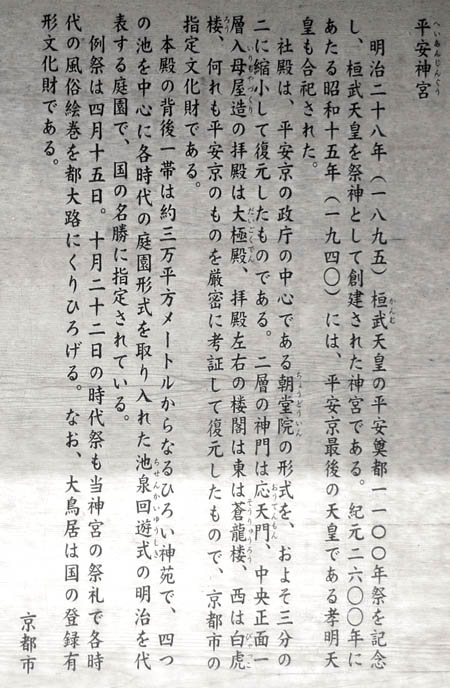 平安神宮
明治二十八年（一八九五）桓武天皇の平安奠都一一〇〇年祭を記念
し、桓武天皇を祭神として創建された神宮である。紀元二六〇〇年に
あたる昭和十五年（一九四〇）には、平安京最後の天皇である孝明天
皇も合祀された。
社殿は、平安京の政庁の中心である朝堂院の形式を、およそ三分の
二に縮小して復元したものである。二層の神門は応天門、中央正面一
層入母屋造の拝殿は大極殿、拝殿左右の楼閣は東は蒼龍楼、西は白虎
楼、何れも平安京のものを厳密に考証して復元したもので、京都市の
指定文化財である。
本殿の背後一帯は約三万平方メートルからなるひろい神苑で、四つ
の池を中心に各時代の庭園形式を取り入れた池泉回遊式の明治を代
表する庭園で、国の名勝に指定されている。
例祭は四月十五日。十月二十二日の時代祭も当神宮の祭礼で各時
代の風俗絵巻を都大路にくりひろげる。なお、大鳥居は国の登録有
形文化財である。
京都市